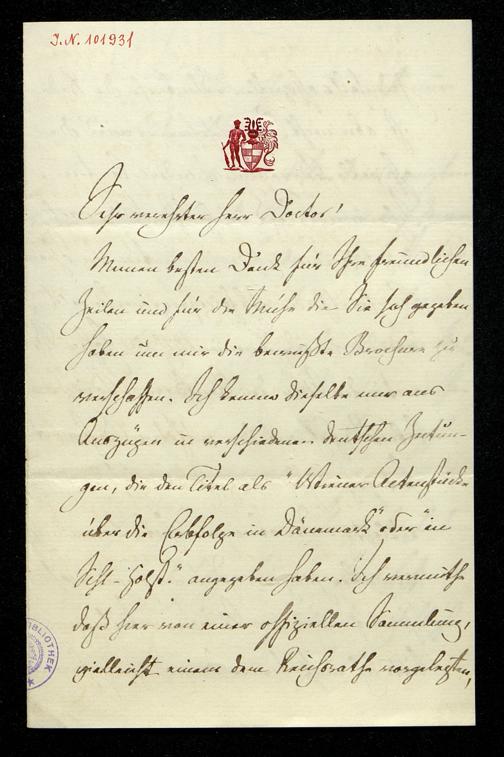 J.N. 101931
Sehr verehrter Herr Doctor!
Meinen besten Dank für Ihre freundlichen
Zeilen und für die Mühe die Sie sich gegeben
haben um mir die bewußte Brochure zu
verschaffen. Ich kenne dieselbe nur aus
Auszügen in verschiedenen deutschen Zeitun-
gen, die den Titel als "Wiener Actenstücke
über die Erbfolge in Dänemark" oder "in
Schl-Holst." angegeben haben. Ich vermuthe
daß hier von einer offiziellen Sammlung,
vielleicht einem dem Reichsrathe vorgelegten,
BIBLIOTHEK